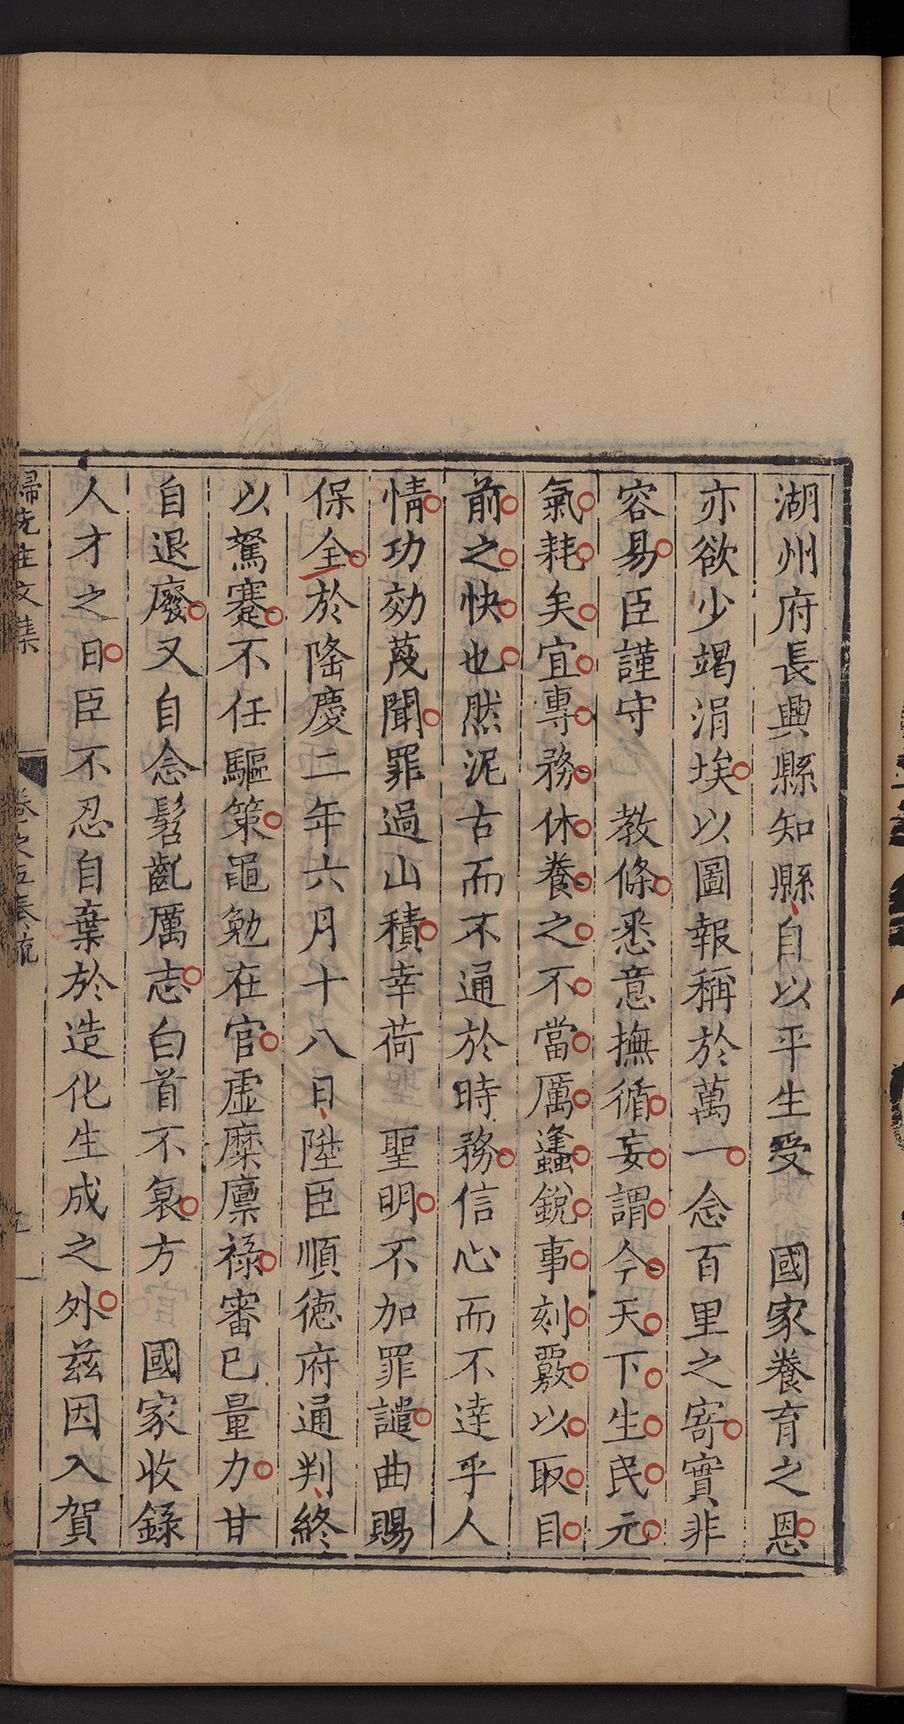 湖州府長興縣知縣自以平生受　國家養育之恩
亦欲少竭涓埃以圖報稱於萬一念百里之寄實非
容易臣謹守　教條悉意撫循妄謂今天下生民元
氣耗矣宜專務休養之不當厲蠭銳事刻覈以取目
前之快也然泥古而不通於時務信心而不達乎人
情功効蔑聞罪過山積幸荷　聖明不加罪譴曲賜
保全於隆慶二年六月十八日陞臣順德府通判終
以駑蹇不任驅策黽勉在官虛糜廩祿審已量力甘
自退廢又自念髫齓厲志白首不衰方　國家收錄
人才之日臣不忍自棄於造化生成之外茲因入賀
歸先生文集　卷之五奏疏